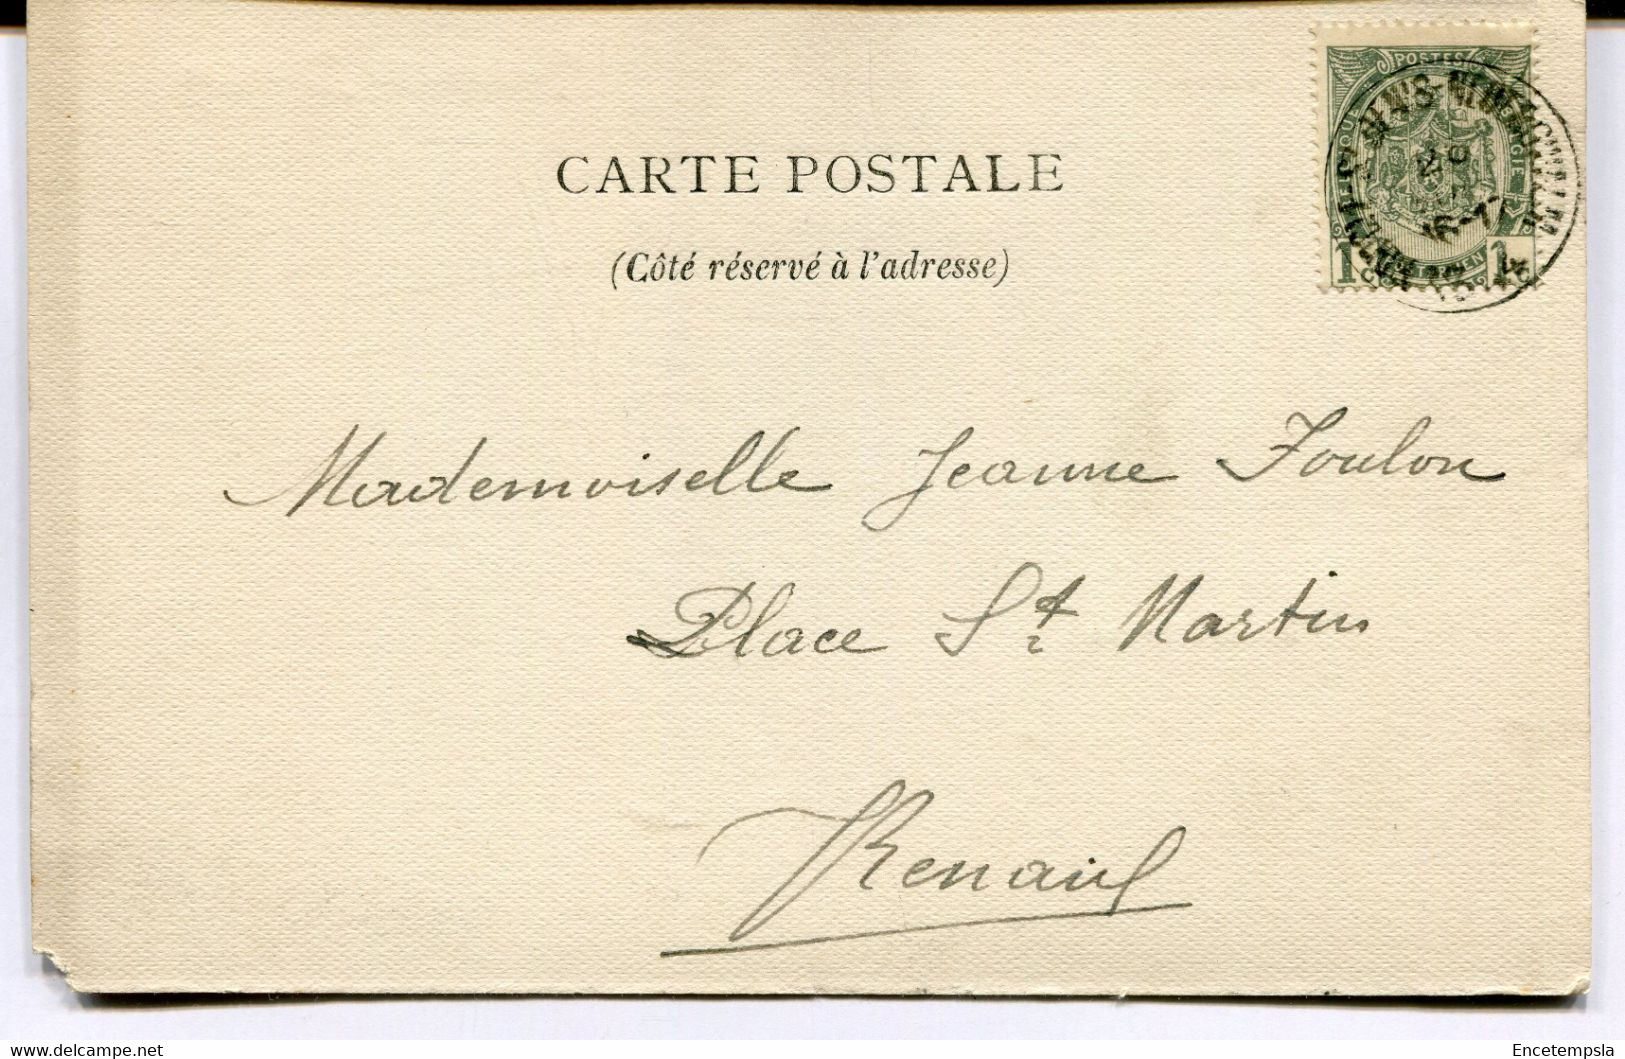 CARTE POSTALE
(Côté réservé à l'adresse)
POSTES
1 1
16-17
Mademoiselle Jeanne Foulon
Place St Martin
Renaix
Encetempsla
www.delcampe.net